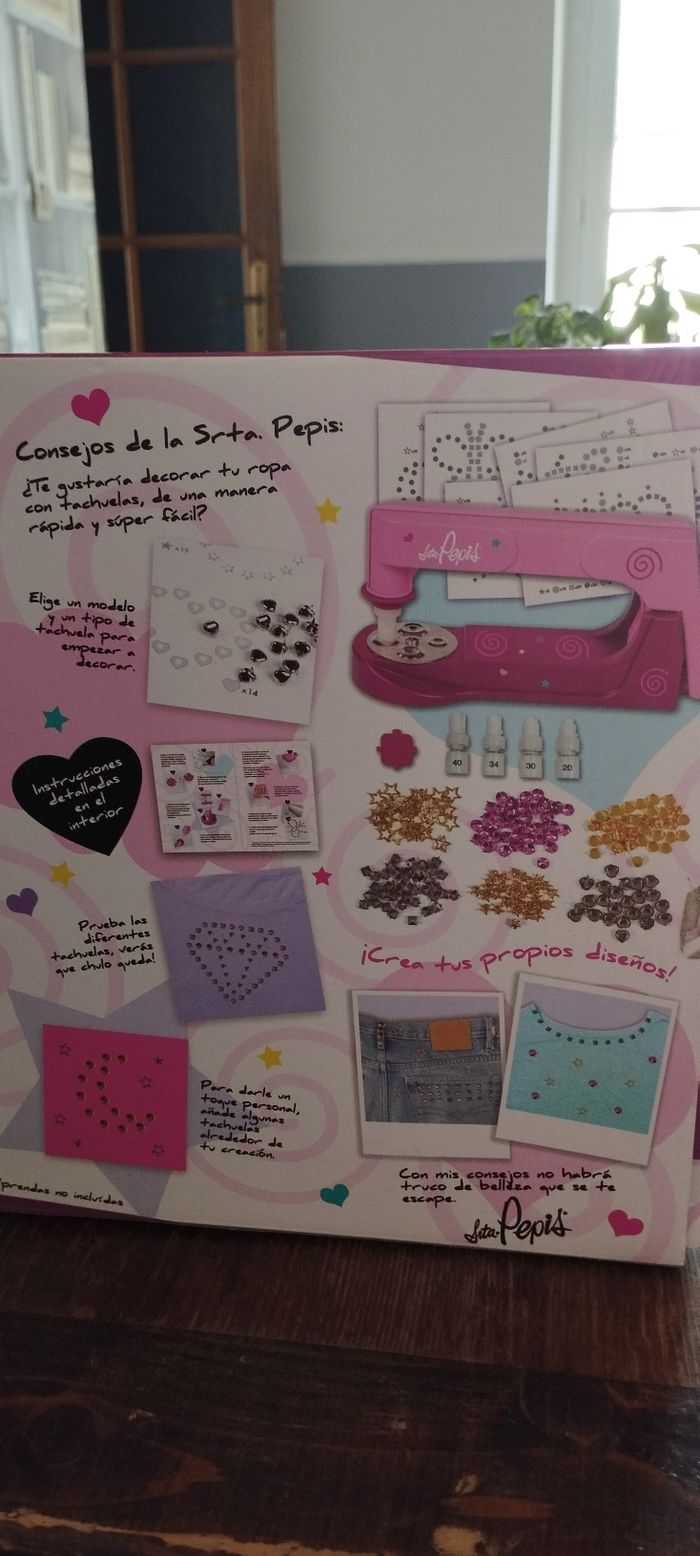 Consejos de la Srta. Pepis:
¿Te gustaría decorar tu ropa
con tachuelas, de una manera
rápida y súper fácil?
Elige un modelo
y un tipo de
tachuela para
empezar a
decorar.
x15
x14
Srta. Pepis
40 34 30 20
Instrucciones
detalladas
en el
interior
Prueba las
diferentes
tachuelas, verás
que chulo queda!
¡Crea tus propios diseños!
Para darle un
toque personal,
añade algunas
tachuelas
alrededor de
tu creación.
prendas no incluídas
Con mis consejos no habrá
truco de belleza que se te
escape.
Srta. Pepis